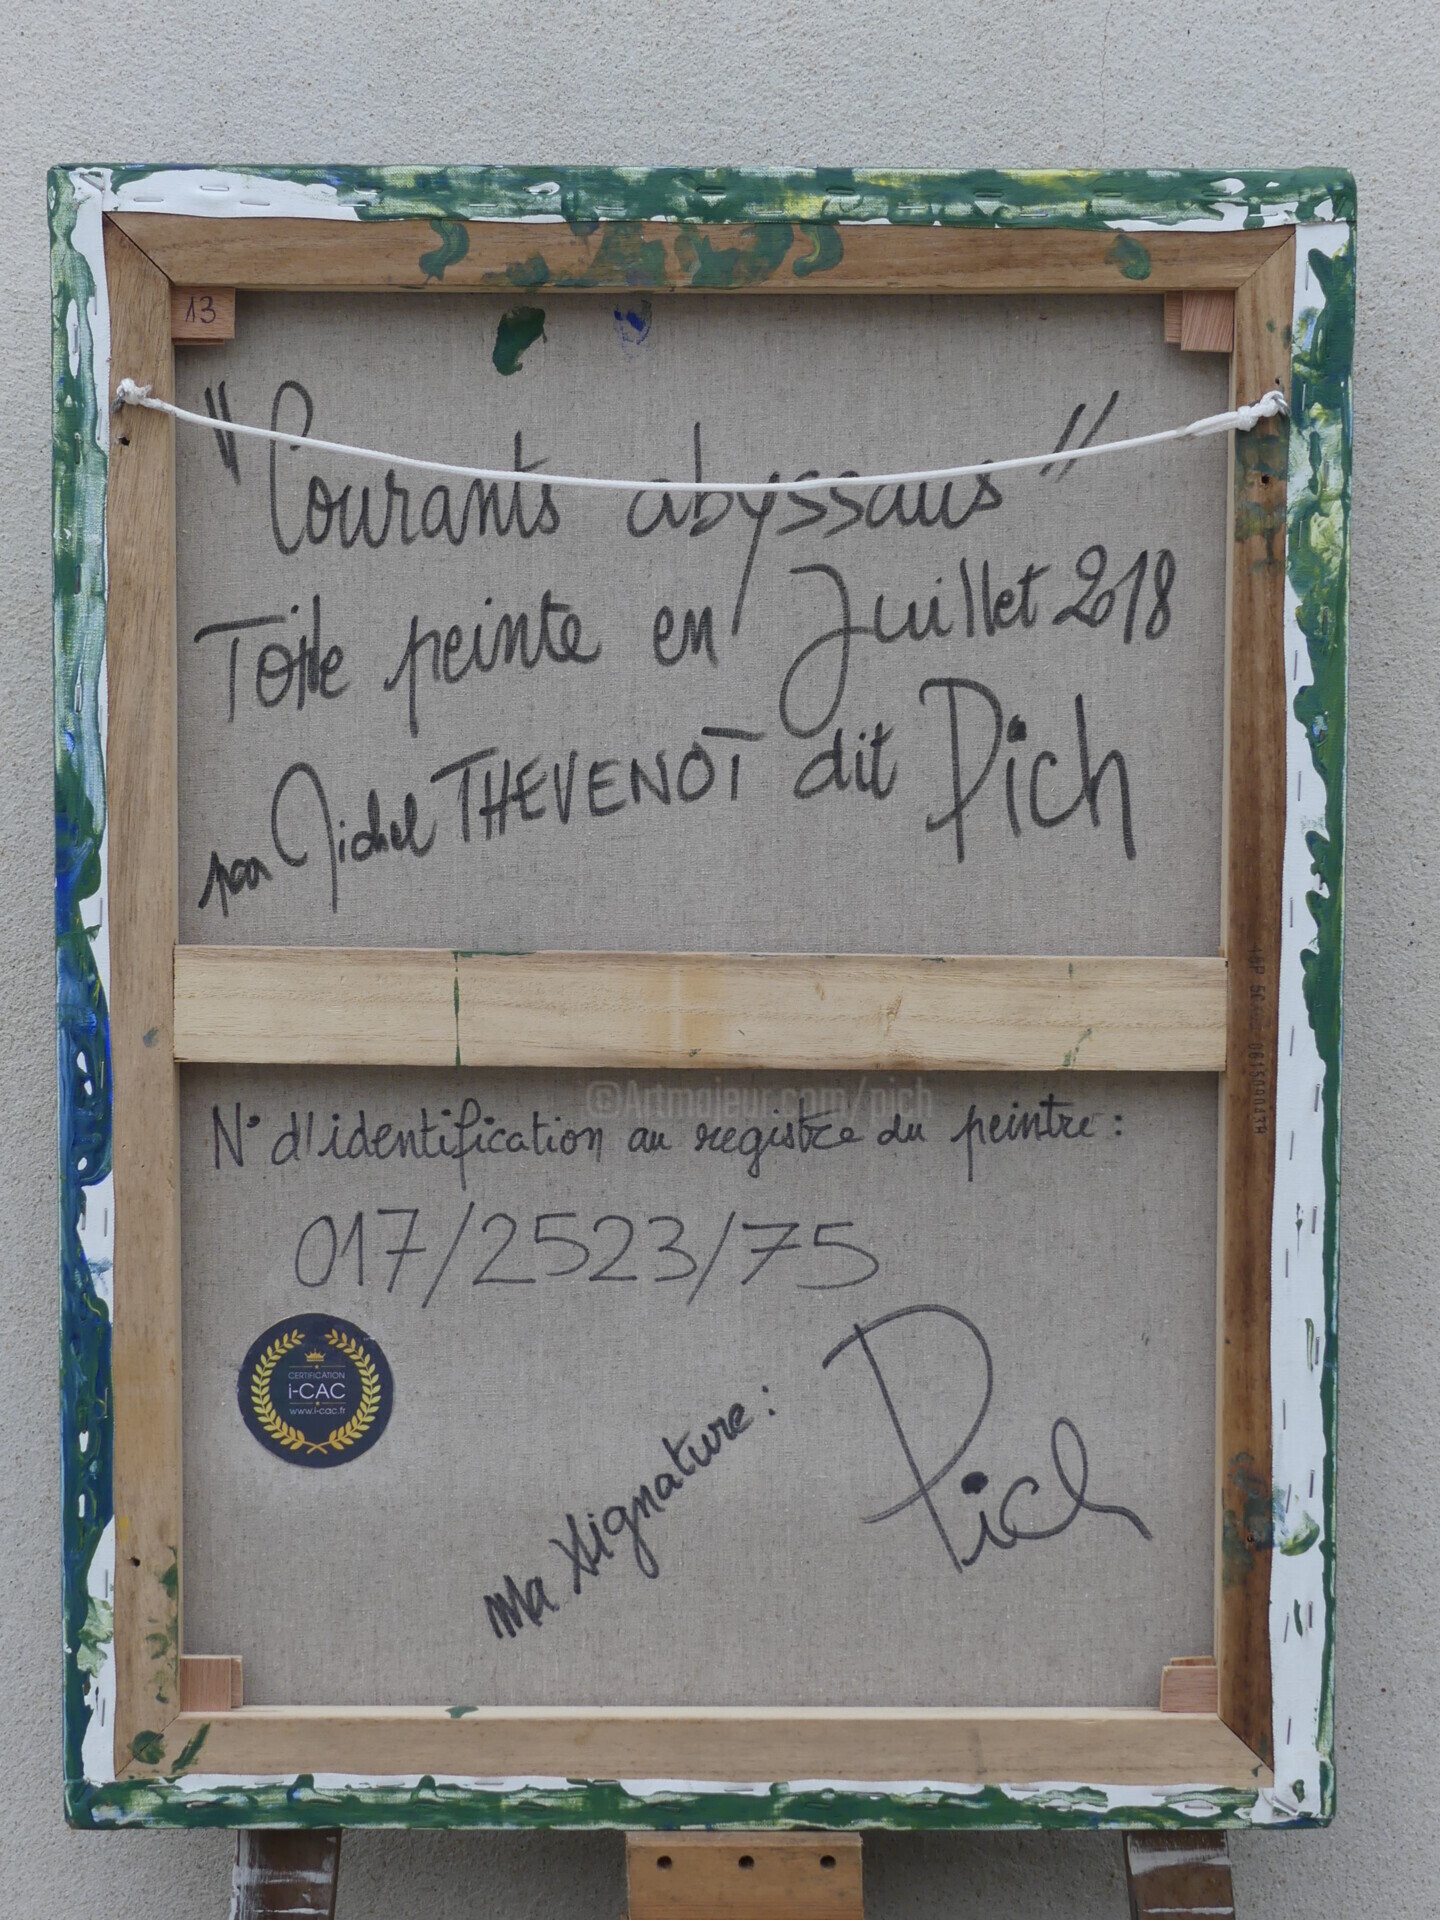 13
"Courants abyssaus"
Toile peinte en Juillet 2018
par Michel THEVENOT dit Pich
©Artmajeur.com/pich
N° d'identification au registre du peintre :
017/2523/75
CERTIFICATION
i-CAC
www.i-cac.fr
Ma Signature :
Pich